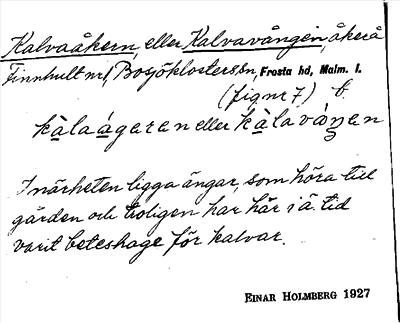 Kalvaåkern, eller Kalvavången, åker å
Finnhult nr 1, Bosjöklosters sn, Frosta hd, Malm. l.
(fig nr 7) b.
kàlaágaran eller kàlaváŋan
I närheten ligga ängar, som höra till
gården och troligen har här i ä. tid
varit beteshage för kalvar.
EINAR HOLMBERG 1927